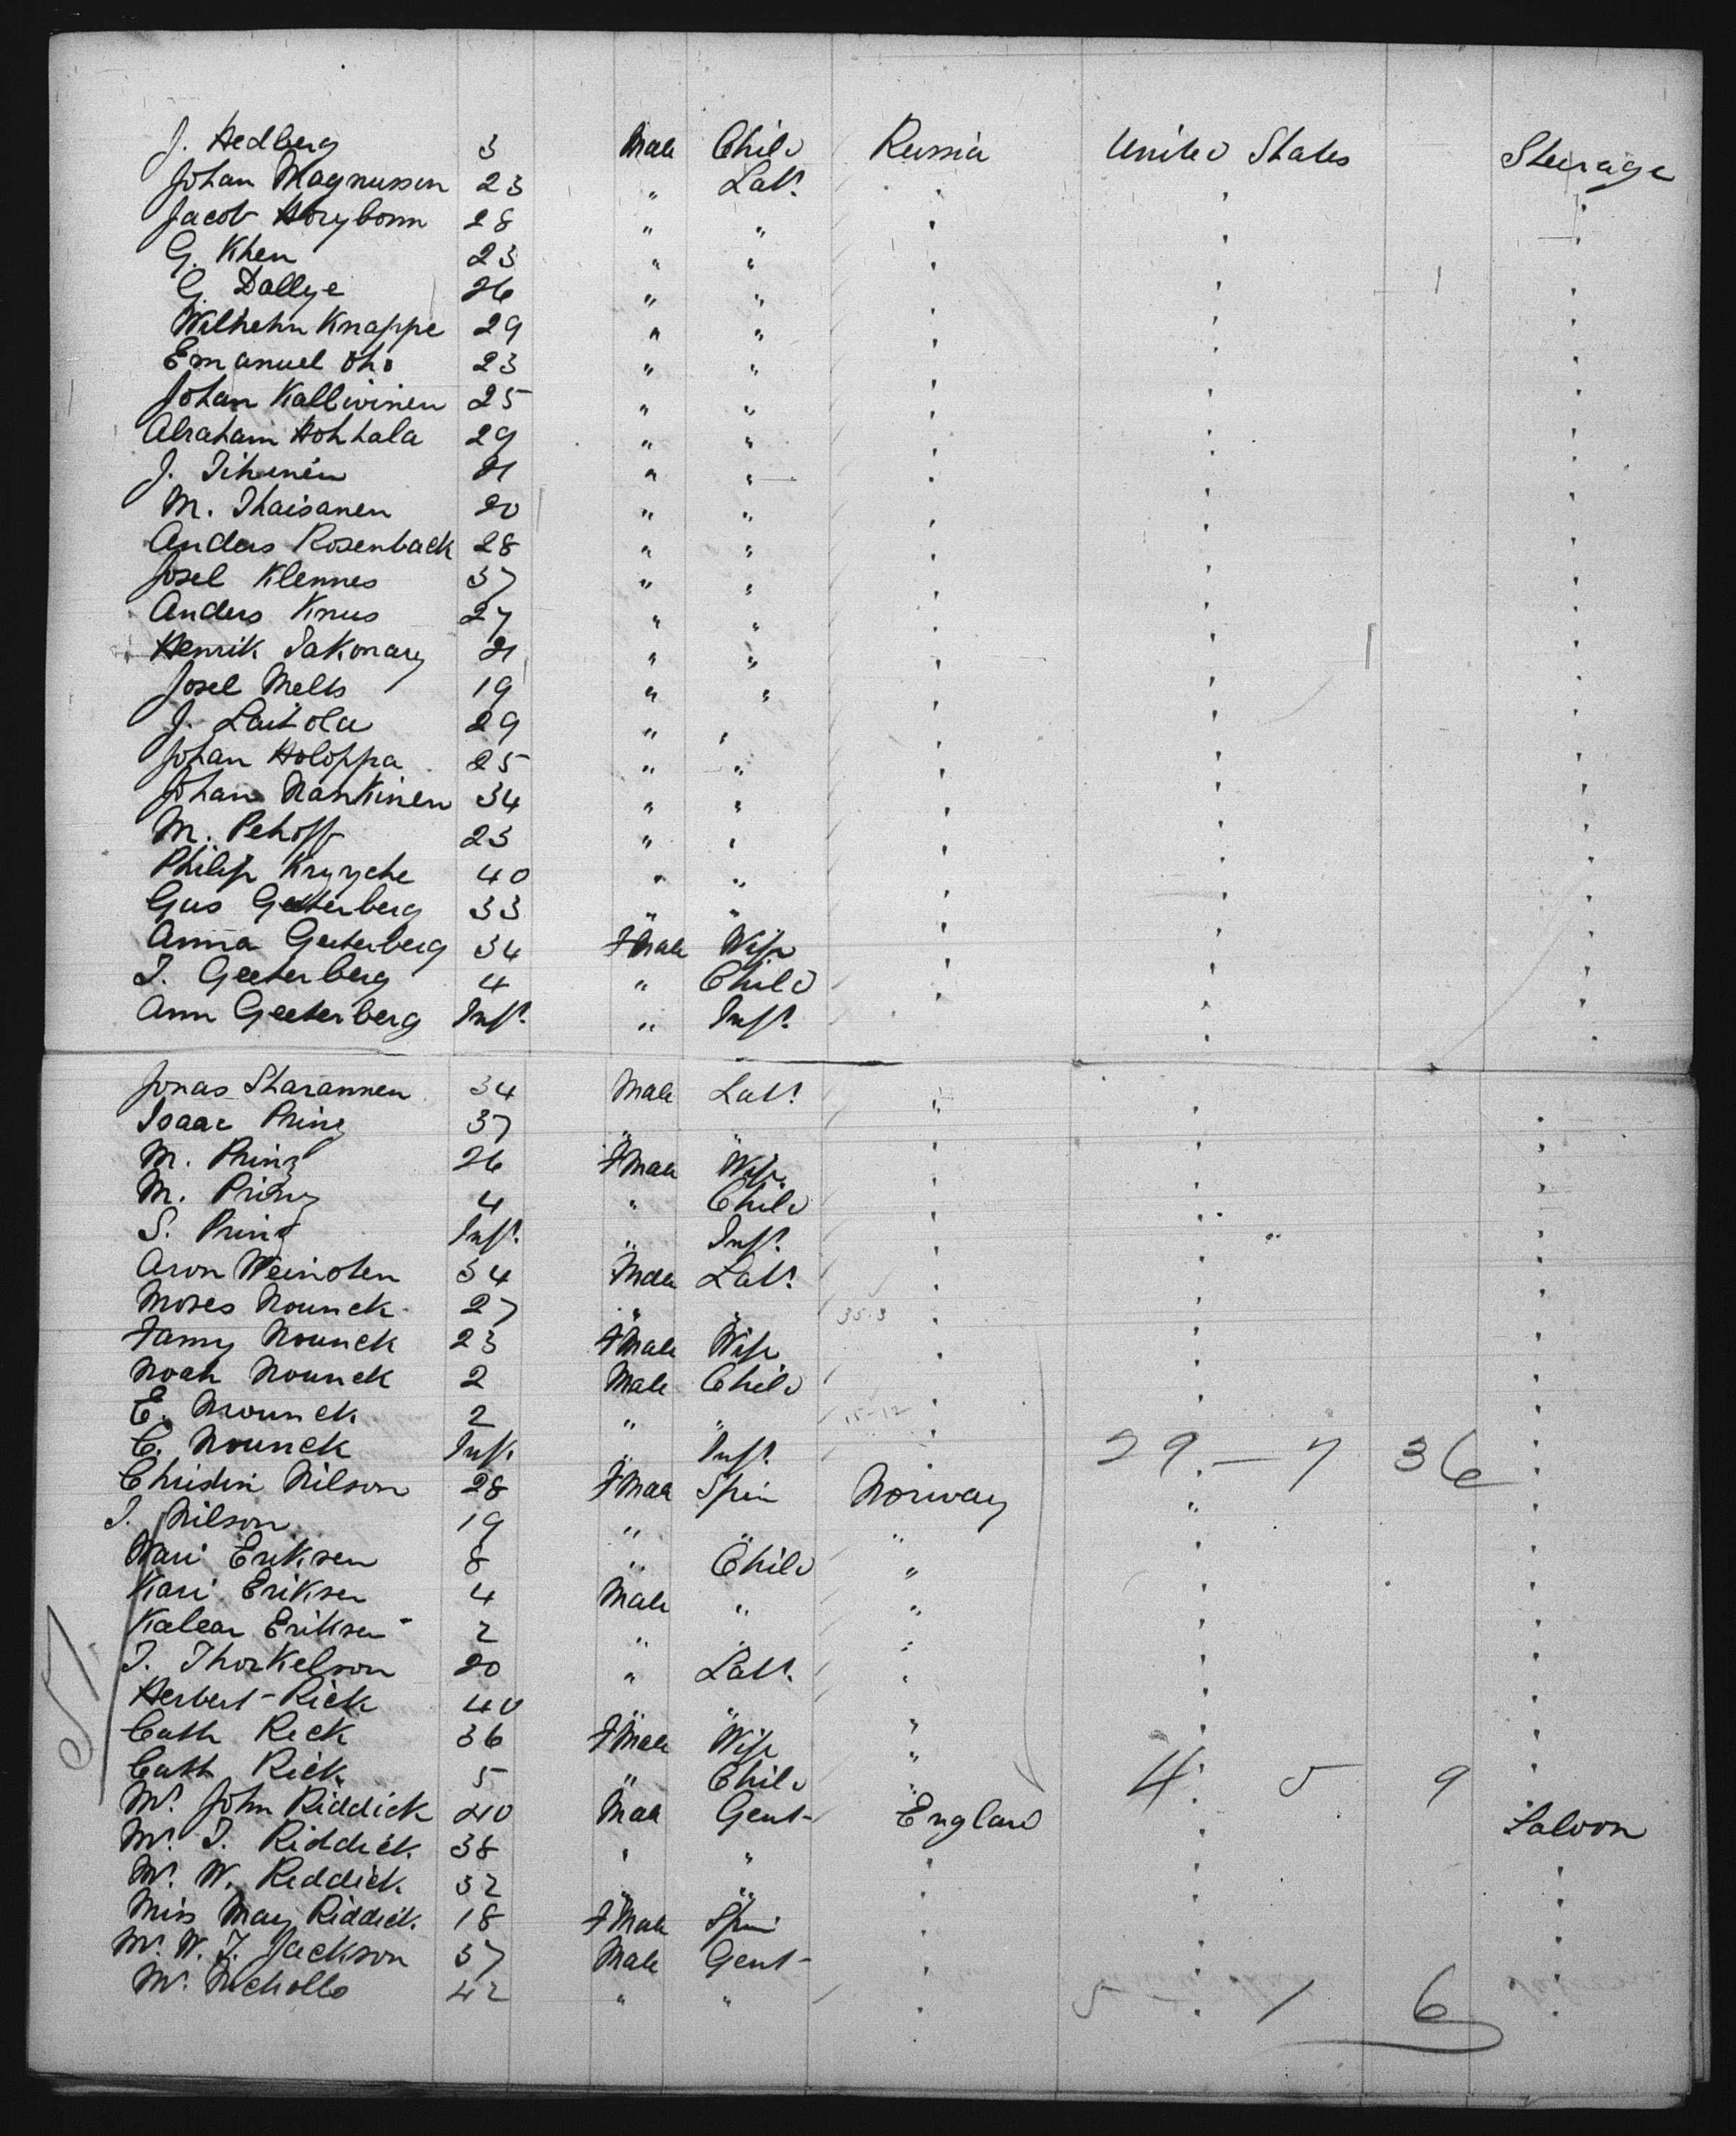 J. Hedberg 3 Male Child Russia United States Steerage
Johan Magnussen 23 " Labr. " " "
Jacob Horybonn 28 " " " " "
G. Khen 23 " " " " "
G. Dallye 26 " " " " "
Wilhelm Knappe 29 " " " " "
Emanuel Oho 23 " " " " "
Johan Kallivinen 25 " " " " "
Abraham Hohhala 29 " " " " "
J. Tihunen 21 " " " " "
M. Thaisanen 20 " " " " "
Anders Rosenback 28 " " " " "
Josel Klennes 37 " " " " "
Anders Knus 27 " " " " "
Henrik Sakonary 21 " " " " "
Josel Melts 19 " " " " "
J. Laitola 29 " " " " "
Johan Holoppa 25 " " " " "
Johan Nankinen 34 " " " " "
M. Pehoff 23 " " " " "
Philip Kryzche 40 " " " " "
Gus Geeterberg 33 " " " " "
Anna Geeterberg 34 Fmale Wife " " "
I. Geeterberg 4 " Child " " "
Ann Geeterberg Inft. " Inft. " " "
Jonas Sharannen 34 Male Labr. " " "
Isaac Prinz 37 " " " " "
M. Prinz 26 Fmale Wife " " "
M. Prinz 4 " Child " " "
S. Prinz Inft. " Inft. " " "
Aron Weinsten 34 Male Labr. " " "
Moses Nounck 27 " " 35-3 " " "
Fanny Nounck 23 Fmale Wife " " "
Noah Nounck 2 Male Child " " "
E. Nounck 2 " " 15-12 " " "
C. Nounck Inft. " Inft. " 29 - 7 36 "
Christin Nilson 28 Fmale Spin Norway " "
I. Nilson 19 " " " " "
Mari Eriksen 8 " Child " " "
Kari Eriksen 4 Male " " " "
Kalear Eriksen 2 " " " " "
T. Thorkelson 20 " Labr. " " "
Herbert Rick 40 " " " " "
Cath Rick 36 Fmale Wife " " "
Cath Rick 5 " Child " 4 5 9 "
Mr. John Riddick 40 Male Gent England " Saloon
Mr. T. Riddick 38 " " " " "
Mr. W. Riddick 32 " " " " "
Miss May Riddick 18 Fmale Spin " " "
Mr. W. J. Jackson 37 Male Gent " " "
Mr. Nicholls 42 " " " 5 1 6 "